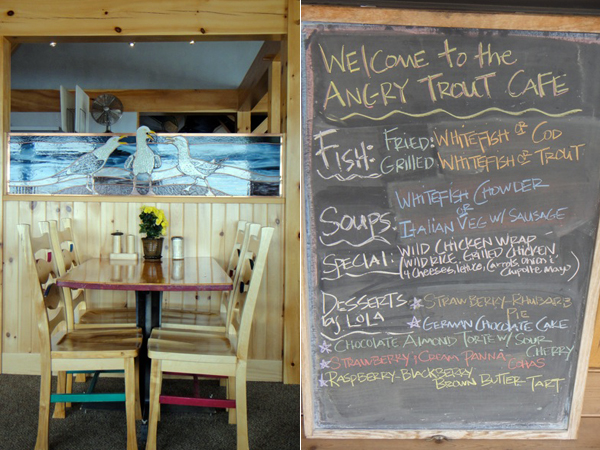 WELCOME to the
ANGRY TROUT CAFE
FISH:
FRIED: WHITEFISH OR COD
GRILLED: WHITEFISH OR TROUT
SOUPS:
WHITEFISH CHOWDER
OR
ITALIAN VEG W/ SAUSAGE
SPECIAL:
WILD CHICKEN WRAP
(WILD RICE, GRILLED CHICKEN,
4 CHEESES, LETTUCE, CARROTS, ONION &
CHIPOTLE MAYO)
DESSERTS
by LOLA
STRAWBERRY-RHUBARB
PIE
GERMAN CHOCOLATE CAKE
CHOCOLATE ALMOND TORTE W/ SOUR
CHERRY
STRAWBERRY & CREAM PANNA-
COTTAS
RASPBERRY-BLACKBERRY
BROWN BUTTER TART